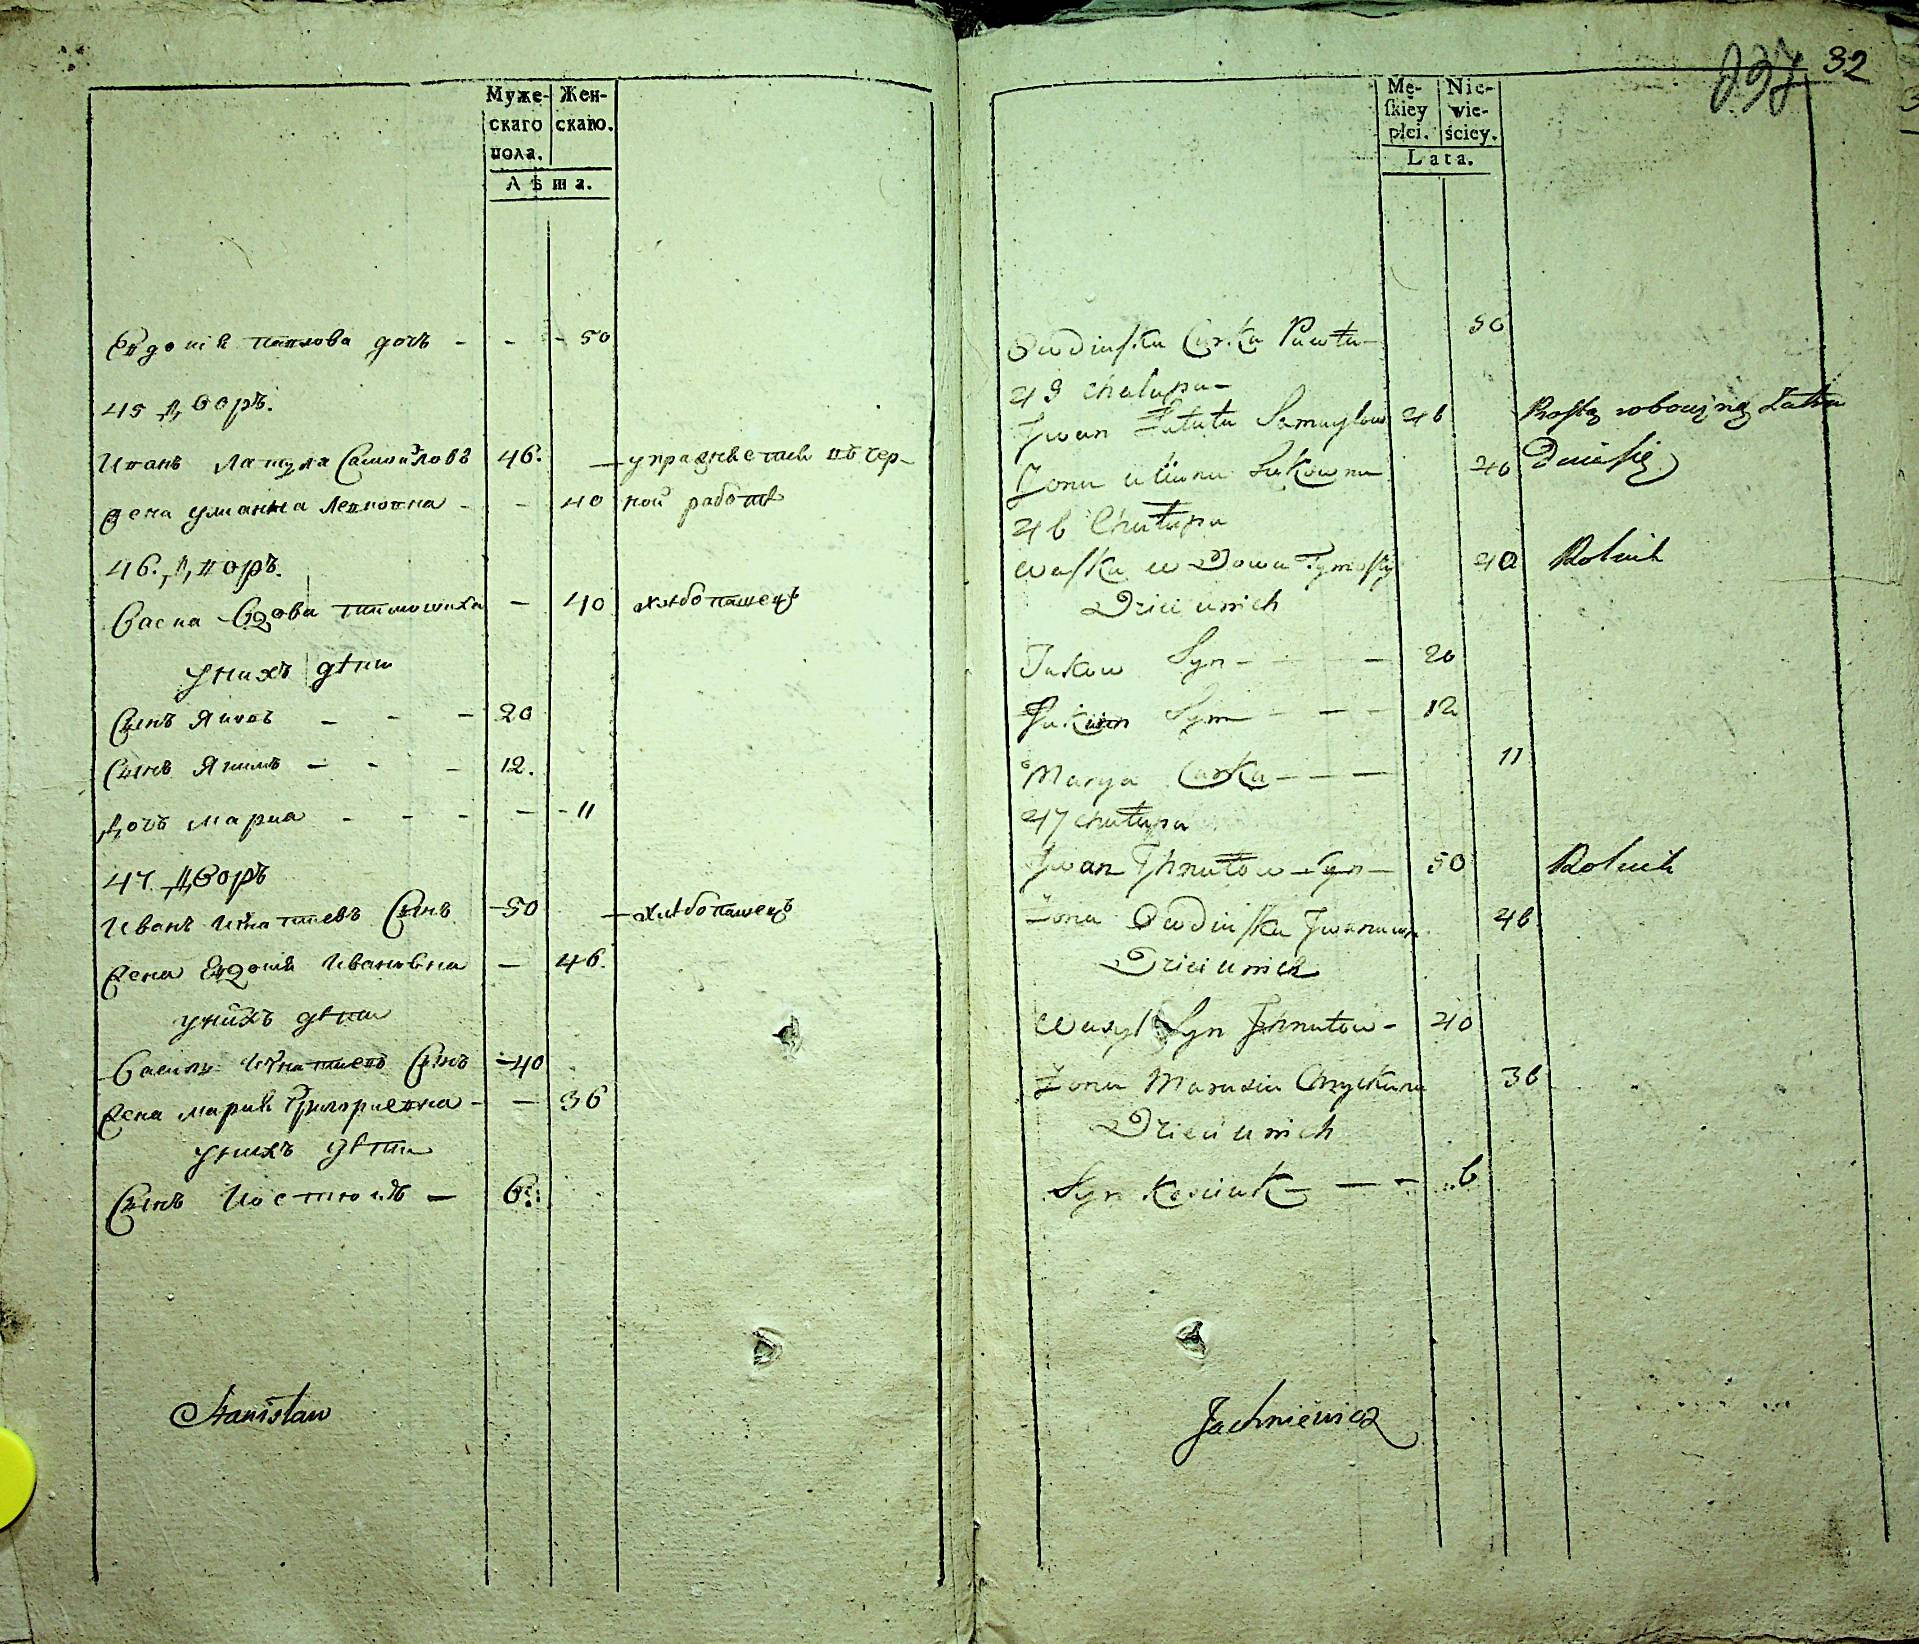 Муже-
скаго
пола.
Жен-
скаго.
Лѣта.
Евдокія павлова дочь - - - 50
45 Дворъ.
Иванъ Латула Самойловъ 46. — упражняется въ чер-
жена улианна Левковна - - 40 ной работѣ
46. Дворъ.
Васка вдова тимошиха — 40 хлѣбопашецъ
у нихъ дѣти
Сынъ Яковъ - - - 20
Сынъ Якимъ - - - 12.
Дочь мариа - - - - - 11
47 Дворъ
Иванъ Игнатиевъ Сынъ - 50 — хлѣбопашецъ
жена Евдокія Ивановна — 46.
у нихъ дѣти
Василь Игнатиевъ Сынъ - 40
жена марія Григориевна - — 36
у нихъ дѣти
Сынъ Костюкъ — 6.
Stanisław
32
Mę-
skiey
płci.
Nie-
wie-
ściey.
Lata.
Owdiuska Curka Pawła — 50
45 chałupa —
Jwan Łatuła Samuyłow 46 Prostą robocizną Zatru
Żona uliana Lukowna 40 Dnia się
46 Chałupa
Waska w Dowa Tymoszy 40 Rolnik
Dzieci u nich
Jakow Syn - - - 20
Jakim Syn - - - 12
Marya Curka - - - 11
47 chałupa
Jwan Jhnatow Syn — 50 Rolnik
Żona Owdiuska Jwanowa 46
Dzieci u nich
Wasyl Syn Jhnatow - 40
Żona Marusia Chryckowa 36
Dzieci u nich
Syn Kosciuk — — - 6
Jachniewicz